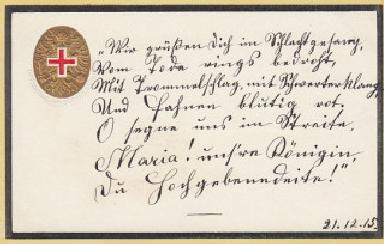 „Wir grüßen Dich im Schlachtgesang,
Vom Tode rings bedroht,
Mit Trommelschlag, mit Schwerterklang,
Und Fahnen blutig rot.
O segne uns im Streite,
Maria! uns're Königin,
Du Hochgebenedeite!"
21.12.15.